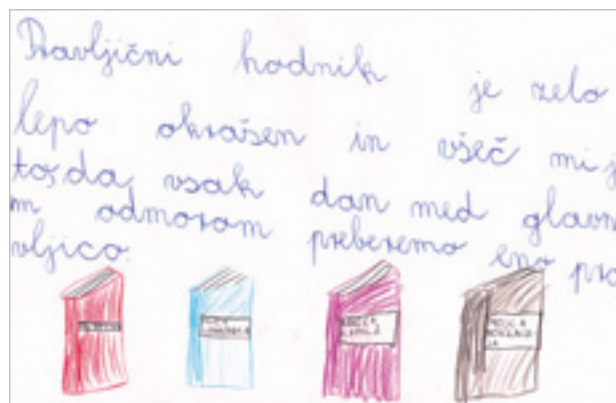 Pravljični hodnik je zelo
lepo okrašen in všeč mi j
to, da vsak dan med glavn
m odmorom preberemo eno pra
vljico.